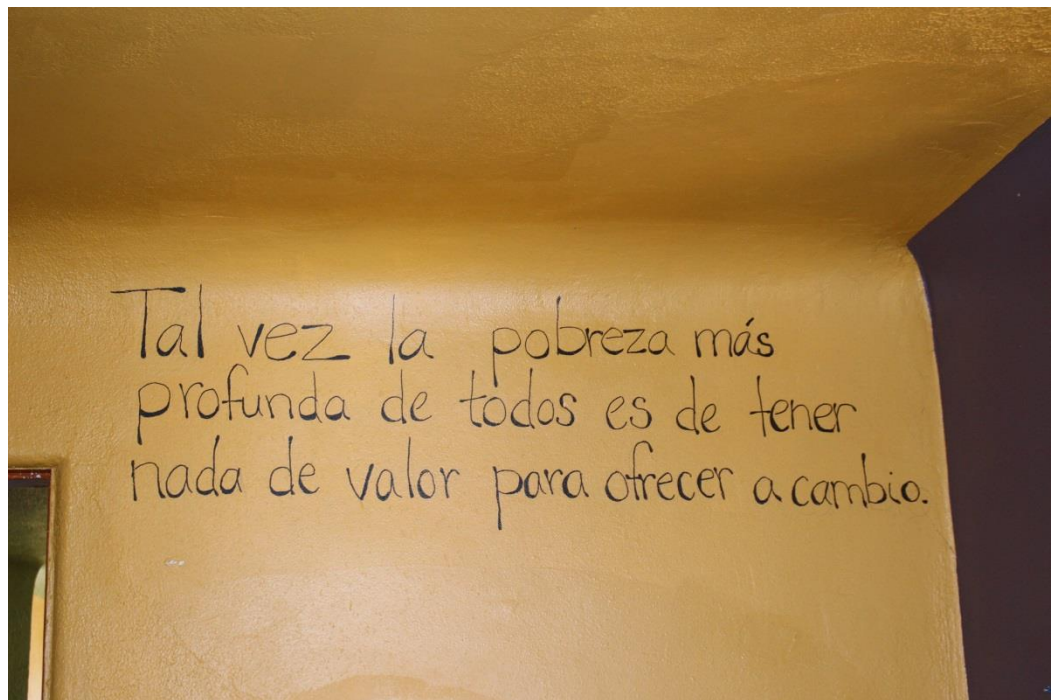 Tal vez la pobreza más
profunda de todos es de tener
nada de valor para ofrecer a cambio.